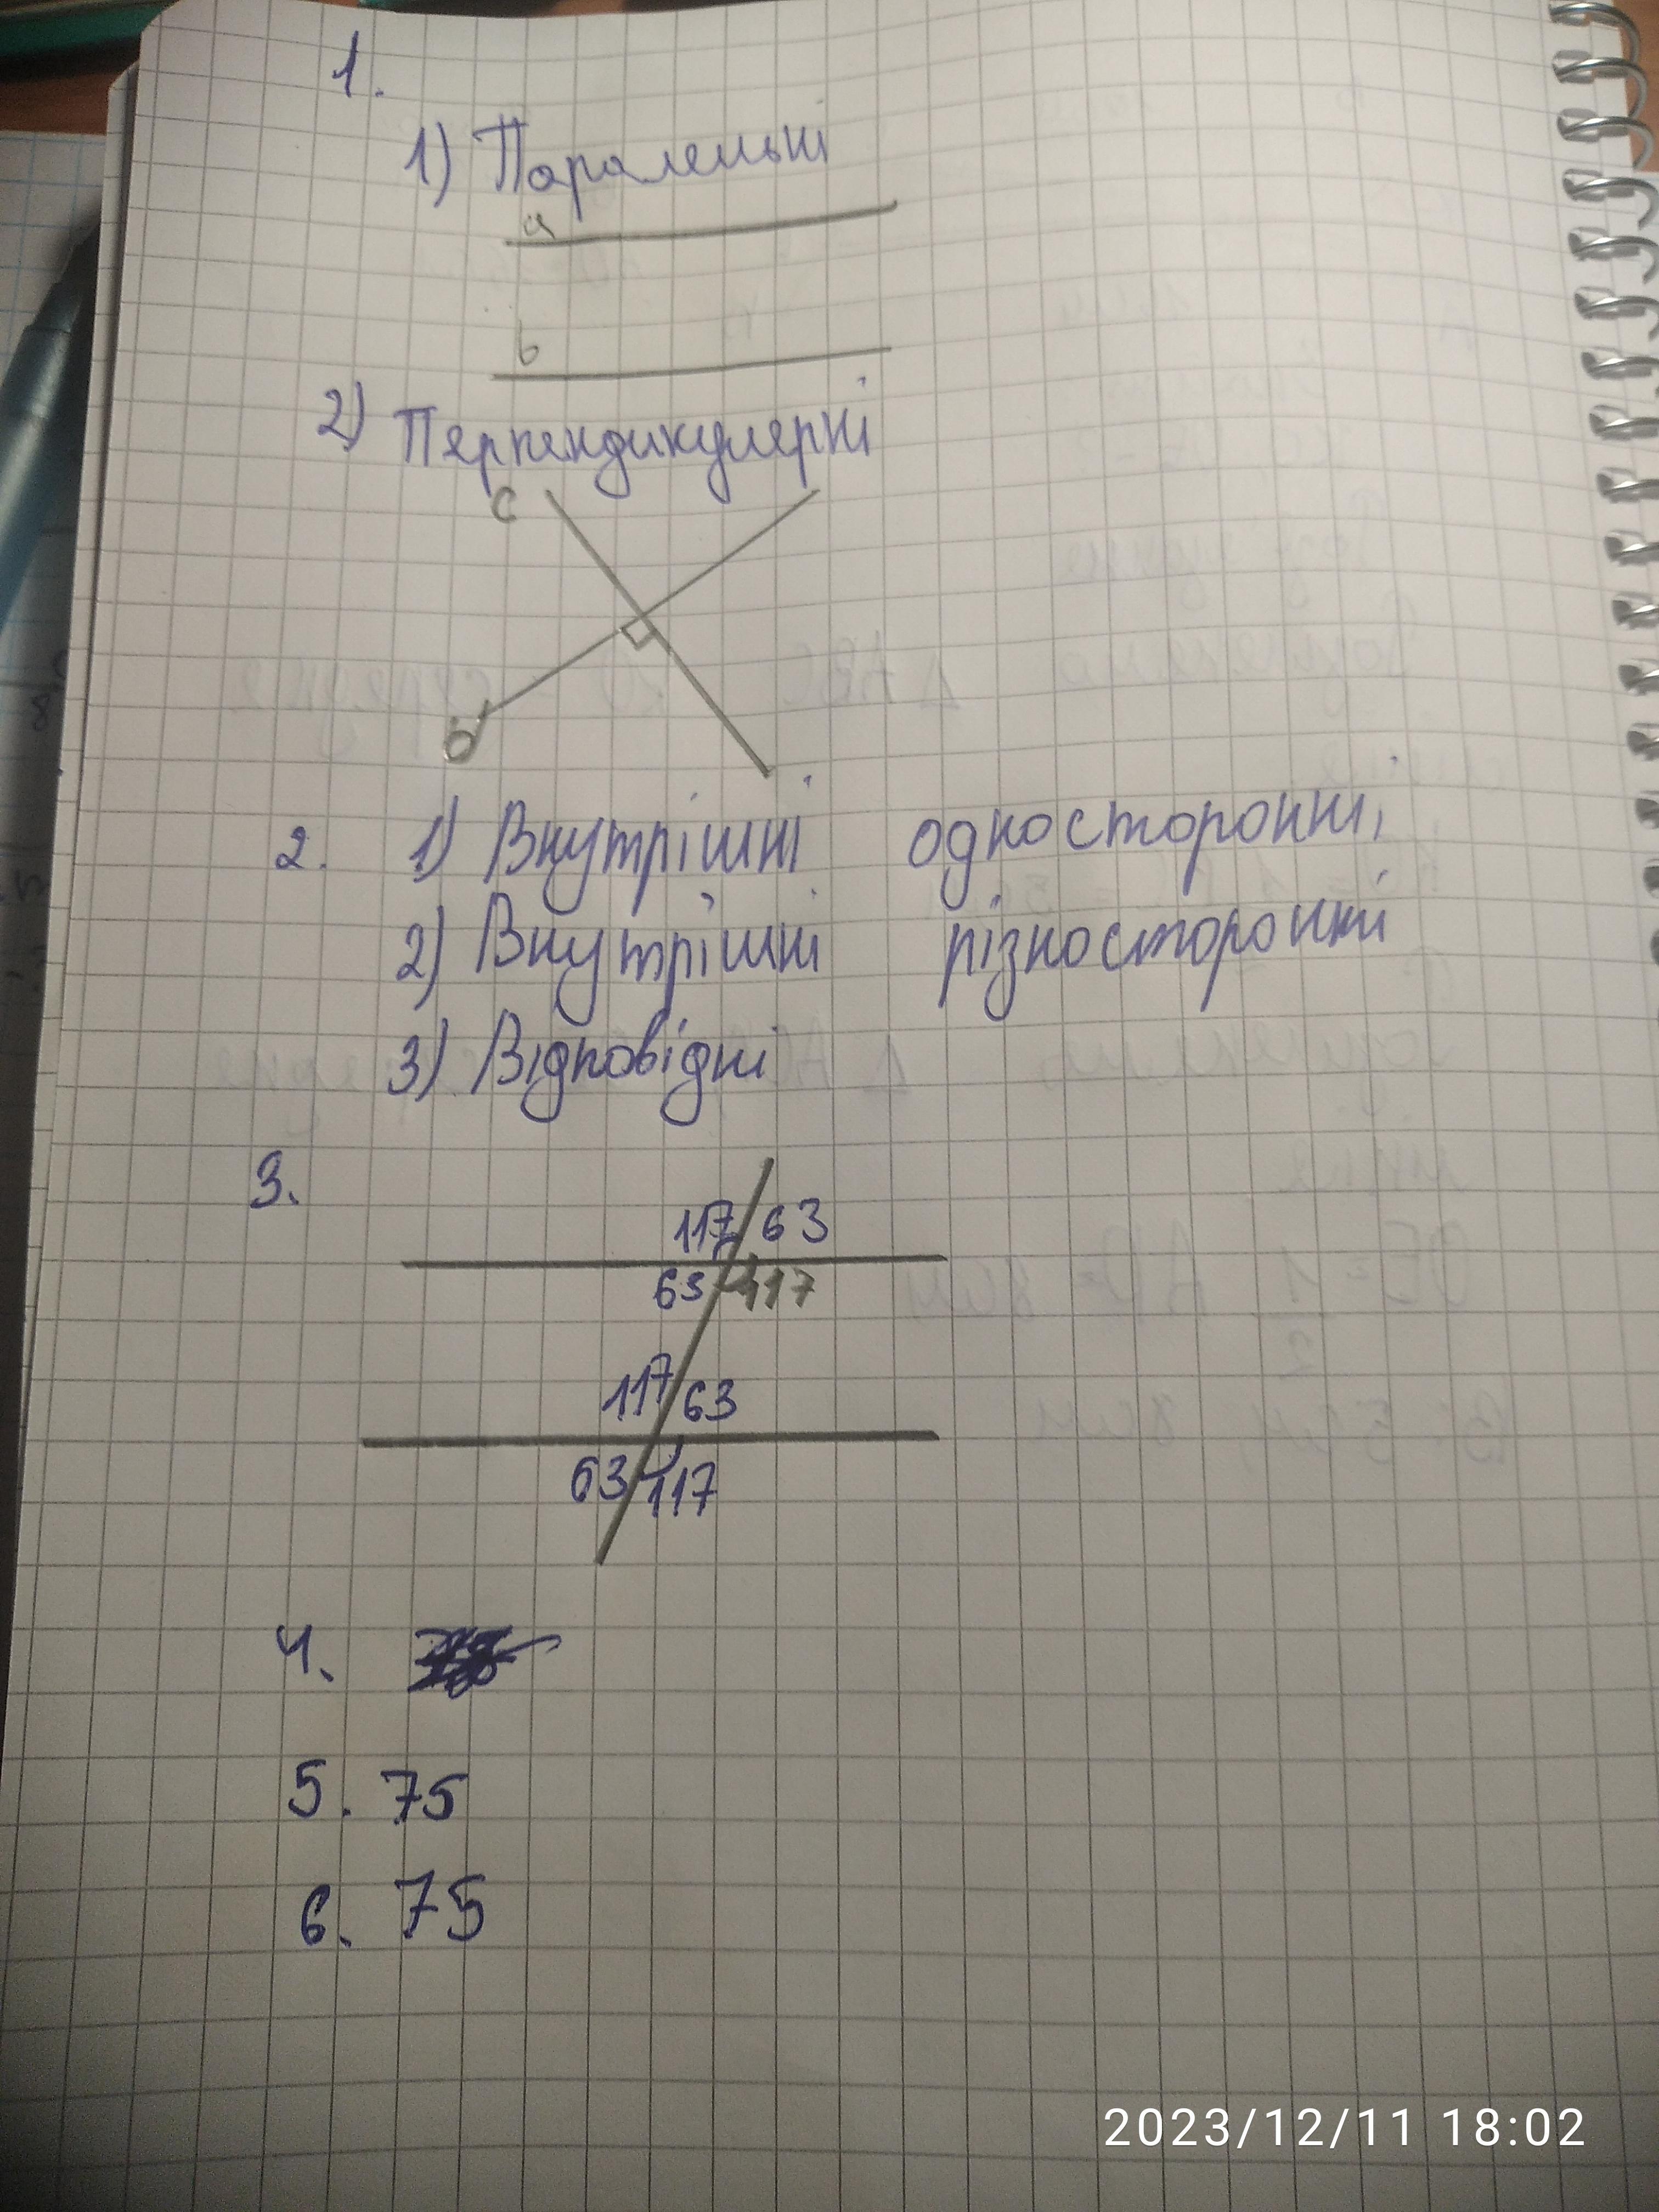 1.
1) Паралельні
a
b
2) Перпендикулерні
c
d
2. 1) Внутрішні односторонні,
2) Внутрішні різносторонні
3) Відповідні
3.
117 63
63 117
117 63
63 117
4.
5. 75
6. 75
2023/12/11 18:02